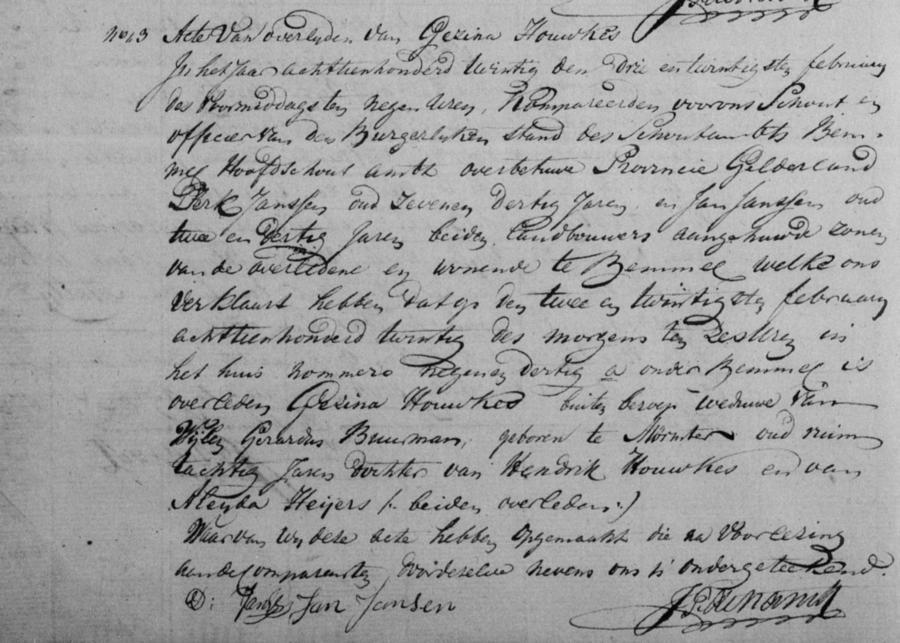 No 13 Acte van overlyden van Gezina Houwkes
In het Jaar achttienhonderd twintig den drie en twintigsten february
des voormiddags ten negen uren, Kompareerden voor ons Schout en
officier van den Burgerlyken stand des Schoutambts Bem-
mel Hoofdschout ambt overbetuwe Provincie Gelderland
Derk Janssen oud zeven en dertig Jaren en Jan Janssen oud
twee en dertig Jaren beiden Landbouwers aangehuwde zonen
van de overledene en wonende te Bemmel welke ons
verklaart hebben dat op den twee en twintigsten february
achttienhonderd twintig des morgens ten zes uren in
het huis nommero negen en dertig a onder Bemmel is
overleden Gezina Houwkes buiten beroep weduwe van
Wylen Gerardus Buurman, geboren te oud ruim
tachtig Jaren dochter van Hendrik Houwkes en van
Aleyda Heijers (: beiden overleden :)
Waar van wy deze acte hebben opgemaakt die na voorlezing
aan de Comparanten door dezelve nevens ons is ondergetekend.
D: Jansen Jan Jansen